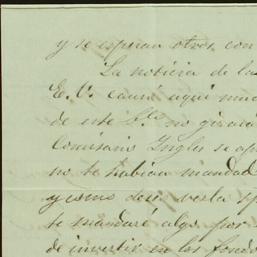 y se espera otros con
La noticia de la
E. V. causó aqui muc
de este no girará
Comisario Ingles se ap
no te habian mandad
y como
te mandaré algo por
de invertir en los fondo